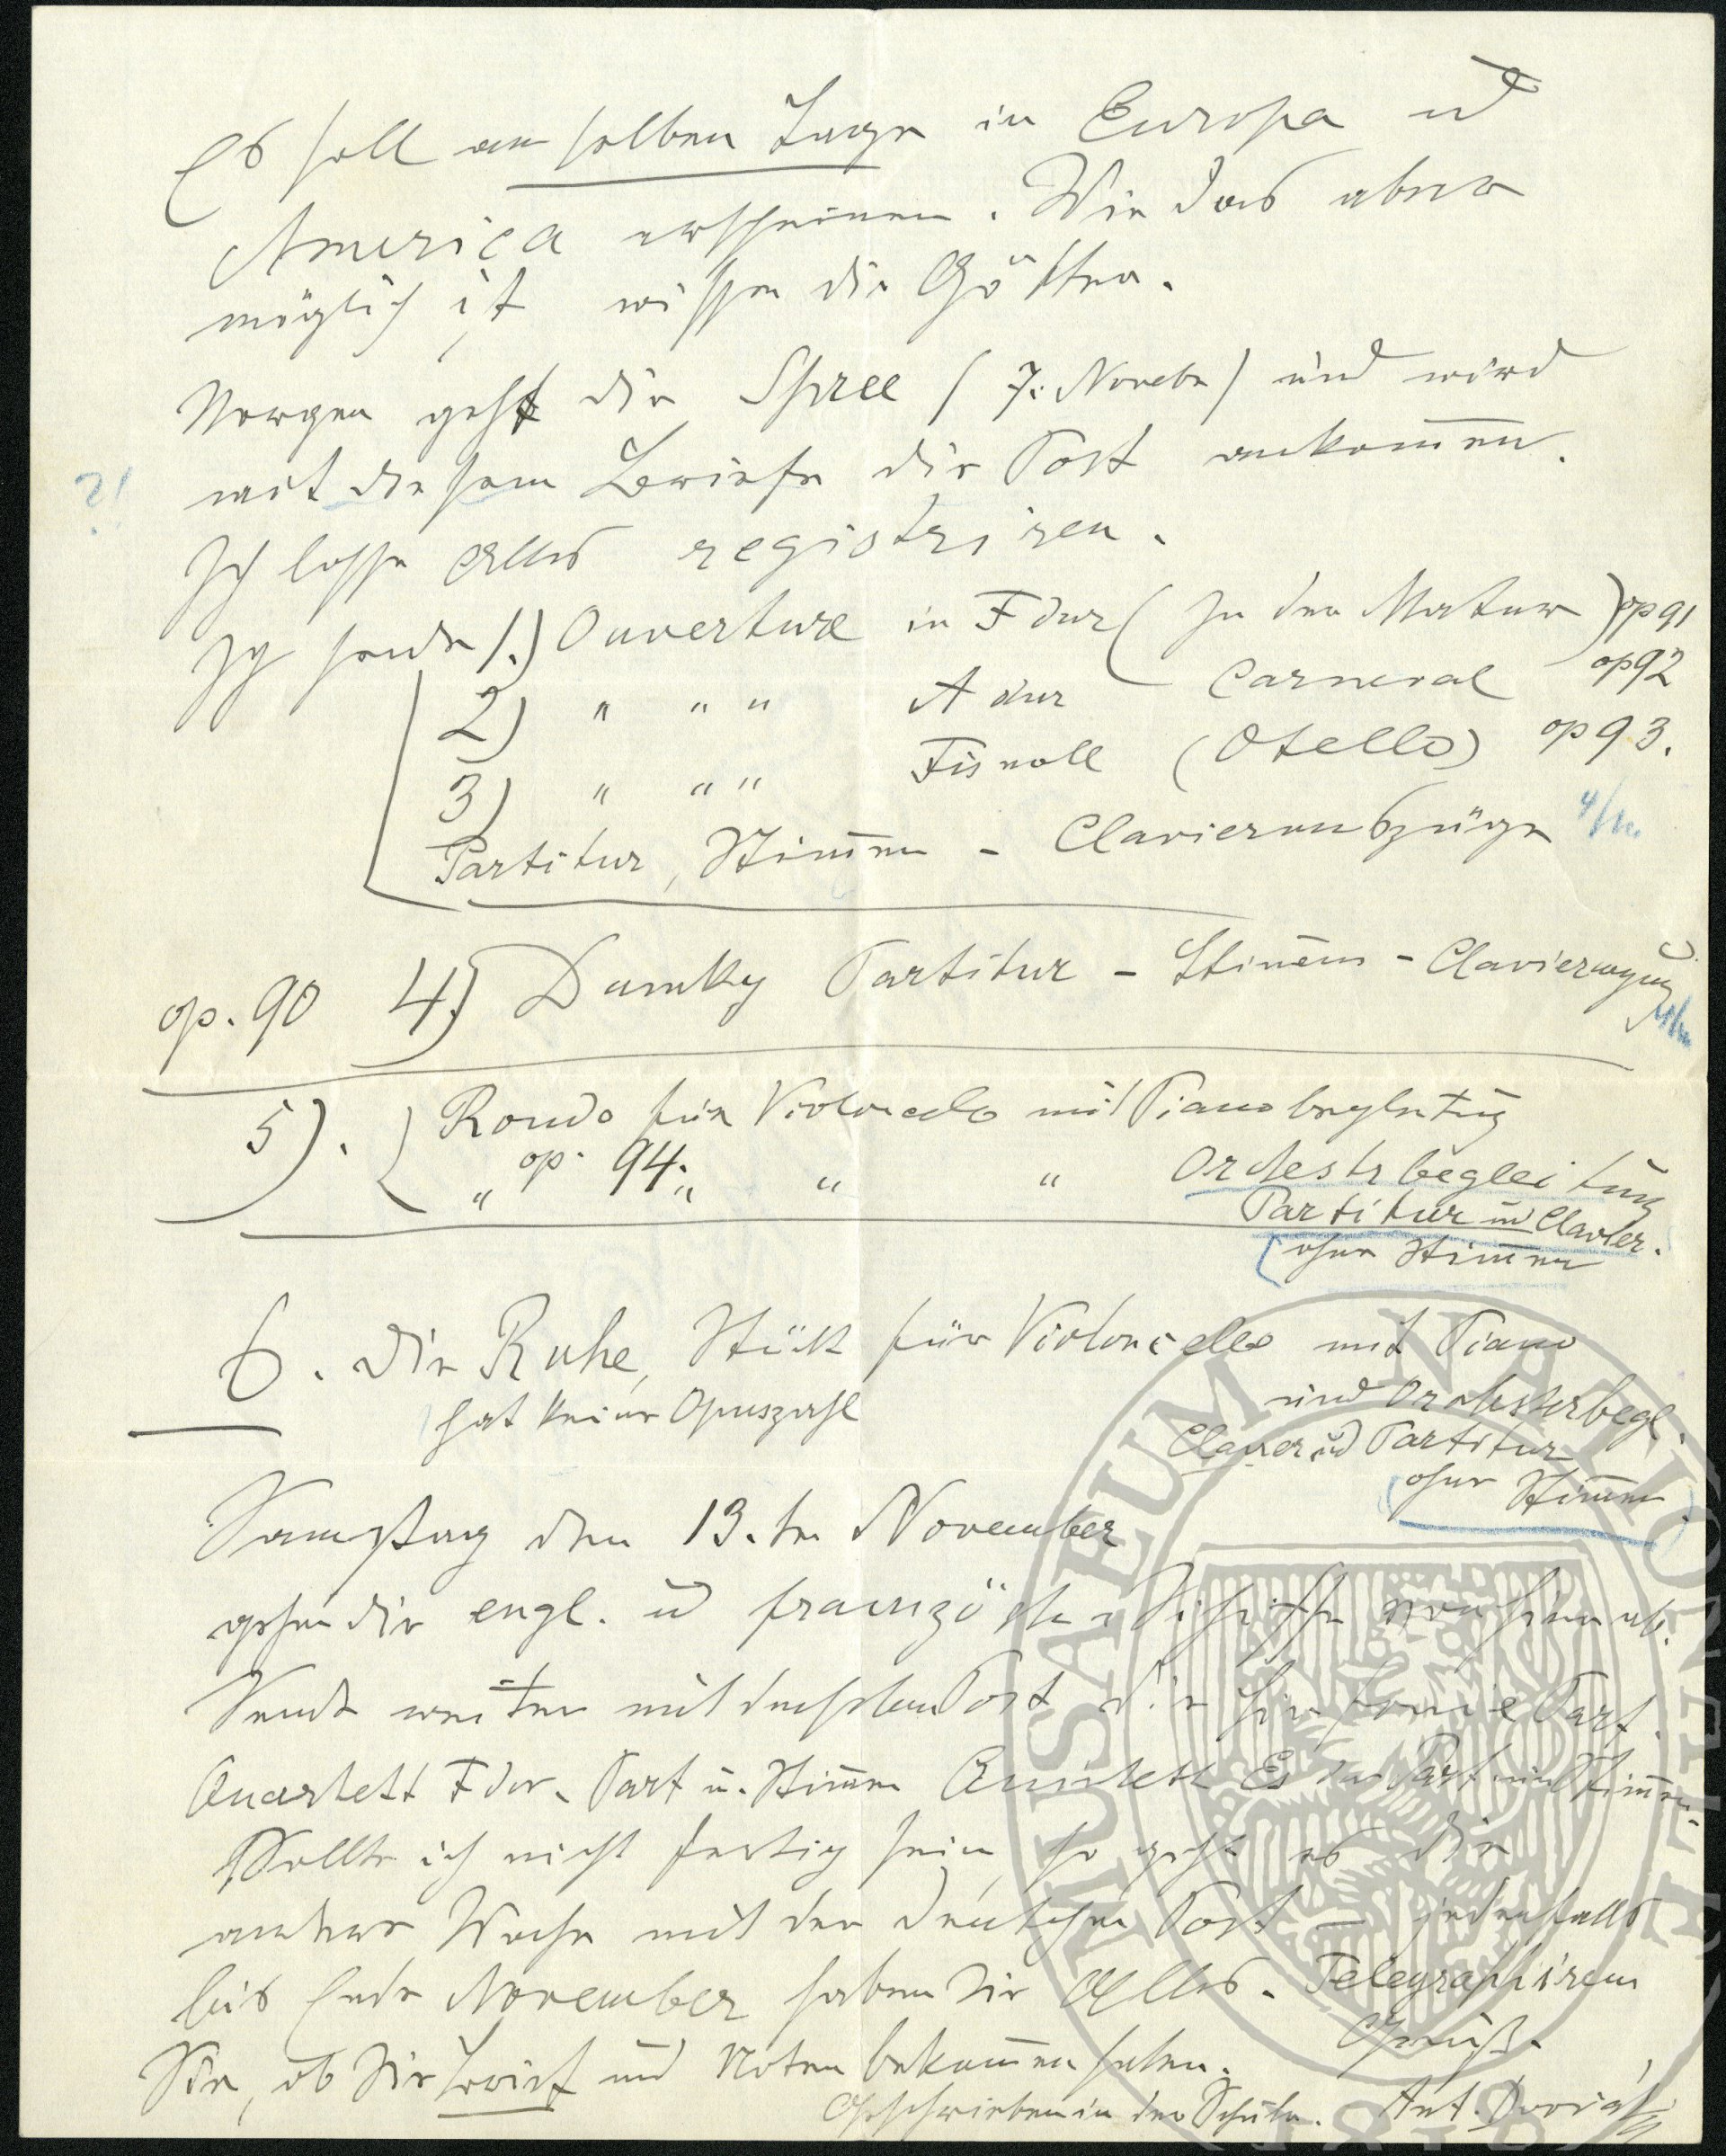 Es soll am selben Tage in Europa ud
America erscheinen. Wie das aber
möglich ist wissen die Götter.
Morgen geht die Spree (7. Novebr) und wird
?! mit diesem Briefe die Post ankom̄en.
Ich lasse Alles registriren.
Ich sende 1.) Ouverture in F dur (In der Natur) op 91
2) " " " A dur Carneval op 92
3) " " " Fis moll (Otello) op 93.
Partitur, Stim̄en - Clavierauszüge 4/m.
op. 90 4.) Dumky Partitur - Stim̄en - Clavierauszug 4/m
5). Rondo für Violoncello mit Pianobegleitung
" op. 94. " " " Orchestrbegleitung
Partitur und Clavier.
ohne Stim̄en
6. Die Ruhe, Stück für Violoncello mit Piano
hat keine Opuszahl und Orchesterbegl.
Clavier ud Partitur
ohne Stim̄en
Samstag den 13.ten November
gehen die engl. ud französische Schiffe
Sende weiter mit Post die Sinfonie Part.
Quartett F dur. Part u. Stim̄en Quintett Es dur Part und Stim̄en.
Sollte ich nicht fertig sein, so geht es die
andere Woche mit der deutschen Post — jedenfalls
bis Ende November haben Sie Alles. Telegraphiren
Sie, ob Sie Brief und Noten bekom̄en haben. Gruß.
Geschrieben in der Schule. Ant. Dvořák
MUSAEUM NATIONALE
1818